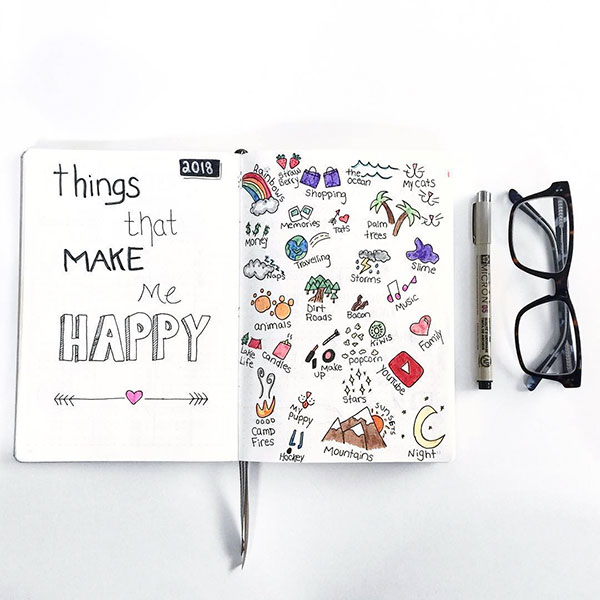 2018
things
that
MAKE
Me
HAPPY
Rainbows
Straw
Berry
Shopping
the
ocean
My Cats
Memories
Tats
palm
trees
Money
Travelling
Slime
Naps
Storms
Dirt
Roads
Bacon
Music
animals
Kiwis
Family
Lake
Life
Candles
Make
up
popcorn
YouTube
Stars
My
Puppy
Sunsets
Camp
Fires
Hockey
Mountains
Night
MICRON 05